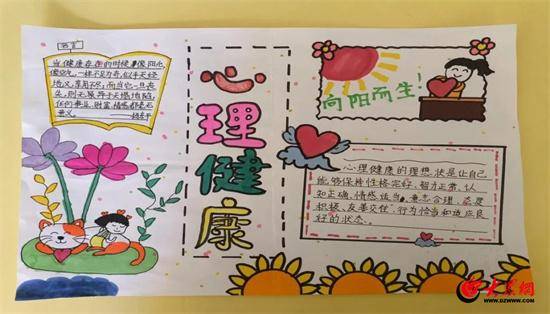 当健康存在的时候,像阳光、
像空气,一样不足为奇,似乎天经
地义,享用不尽,而当它一旦丧
失,则无异于天塌地陷,
任何事业、财富、情感都毫无
意义。
心
理
健
康
向阳而生!
心理健康的理想状是让自己
能够保持性格完好、智力正常、认
知正确、情感适当、意志合理、态度
积极、友善交往、行为恰当和适应良
好的状态。
大众网
WWW.DZWWW.COM